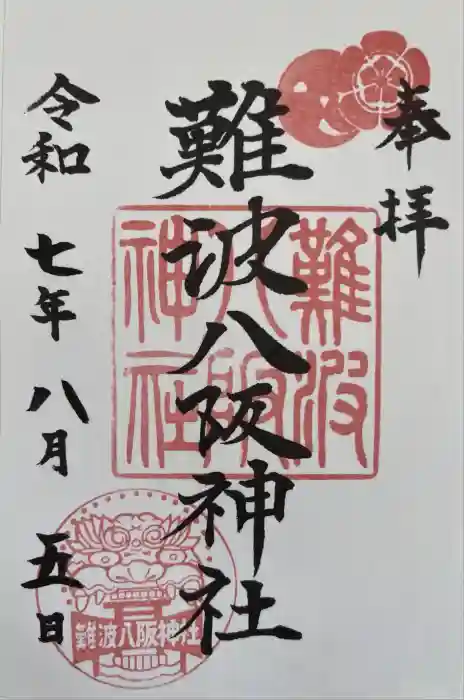 奉拝
難波八阪神社
令和七年八月五日
難波八阪神社
難波八阪神社